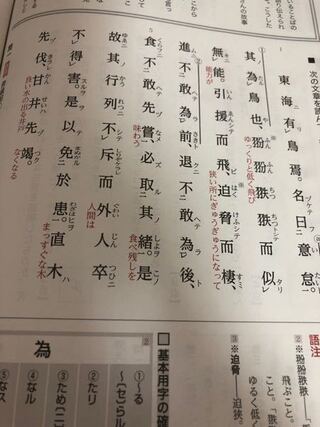 ことばの
り伝えられ
こうした
の故事
次の文章を
東海有鳥焉。名曰意怠。
其為鳥也、翂翂翐翐而似
ゆっくりと低く飛び
無能。引援而飛、迫脅而棲、
能力が
狭い所にぎゅうぎゅうになって
進不敢為前、退不敢為後、
食不敢先嘗、必取其緒。是
味わう
食べ残しを
故其行列不斥而外人卒
人間は
不得害。是以免於患。直木
まっすぐな木
先伐、甘井先竭。
良い水の出る井戸
なくなる
語注
②翂翂翐翐
飛ぶこと。
ゆるく低く
③迫脅――迫狭。
基本用字の確
為
①〜る
〔〜(セ)らル
②たり
③ため〔ニ
④なル
⑤なス